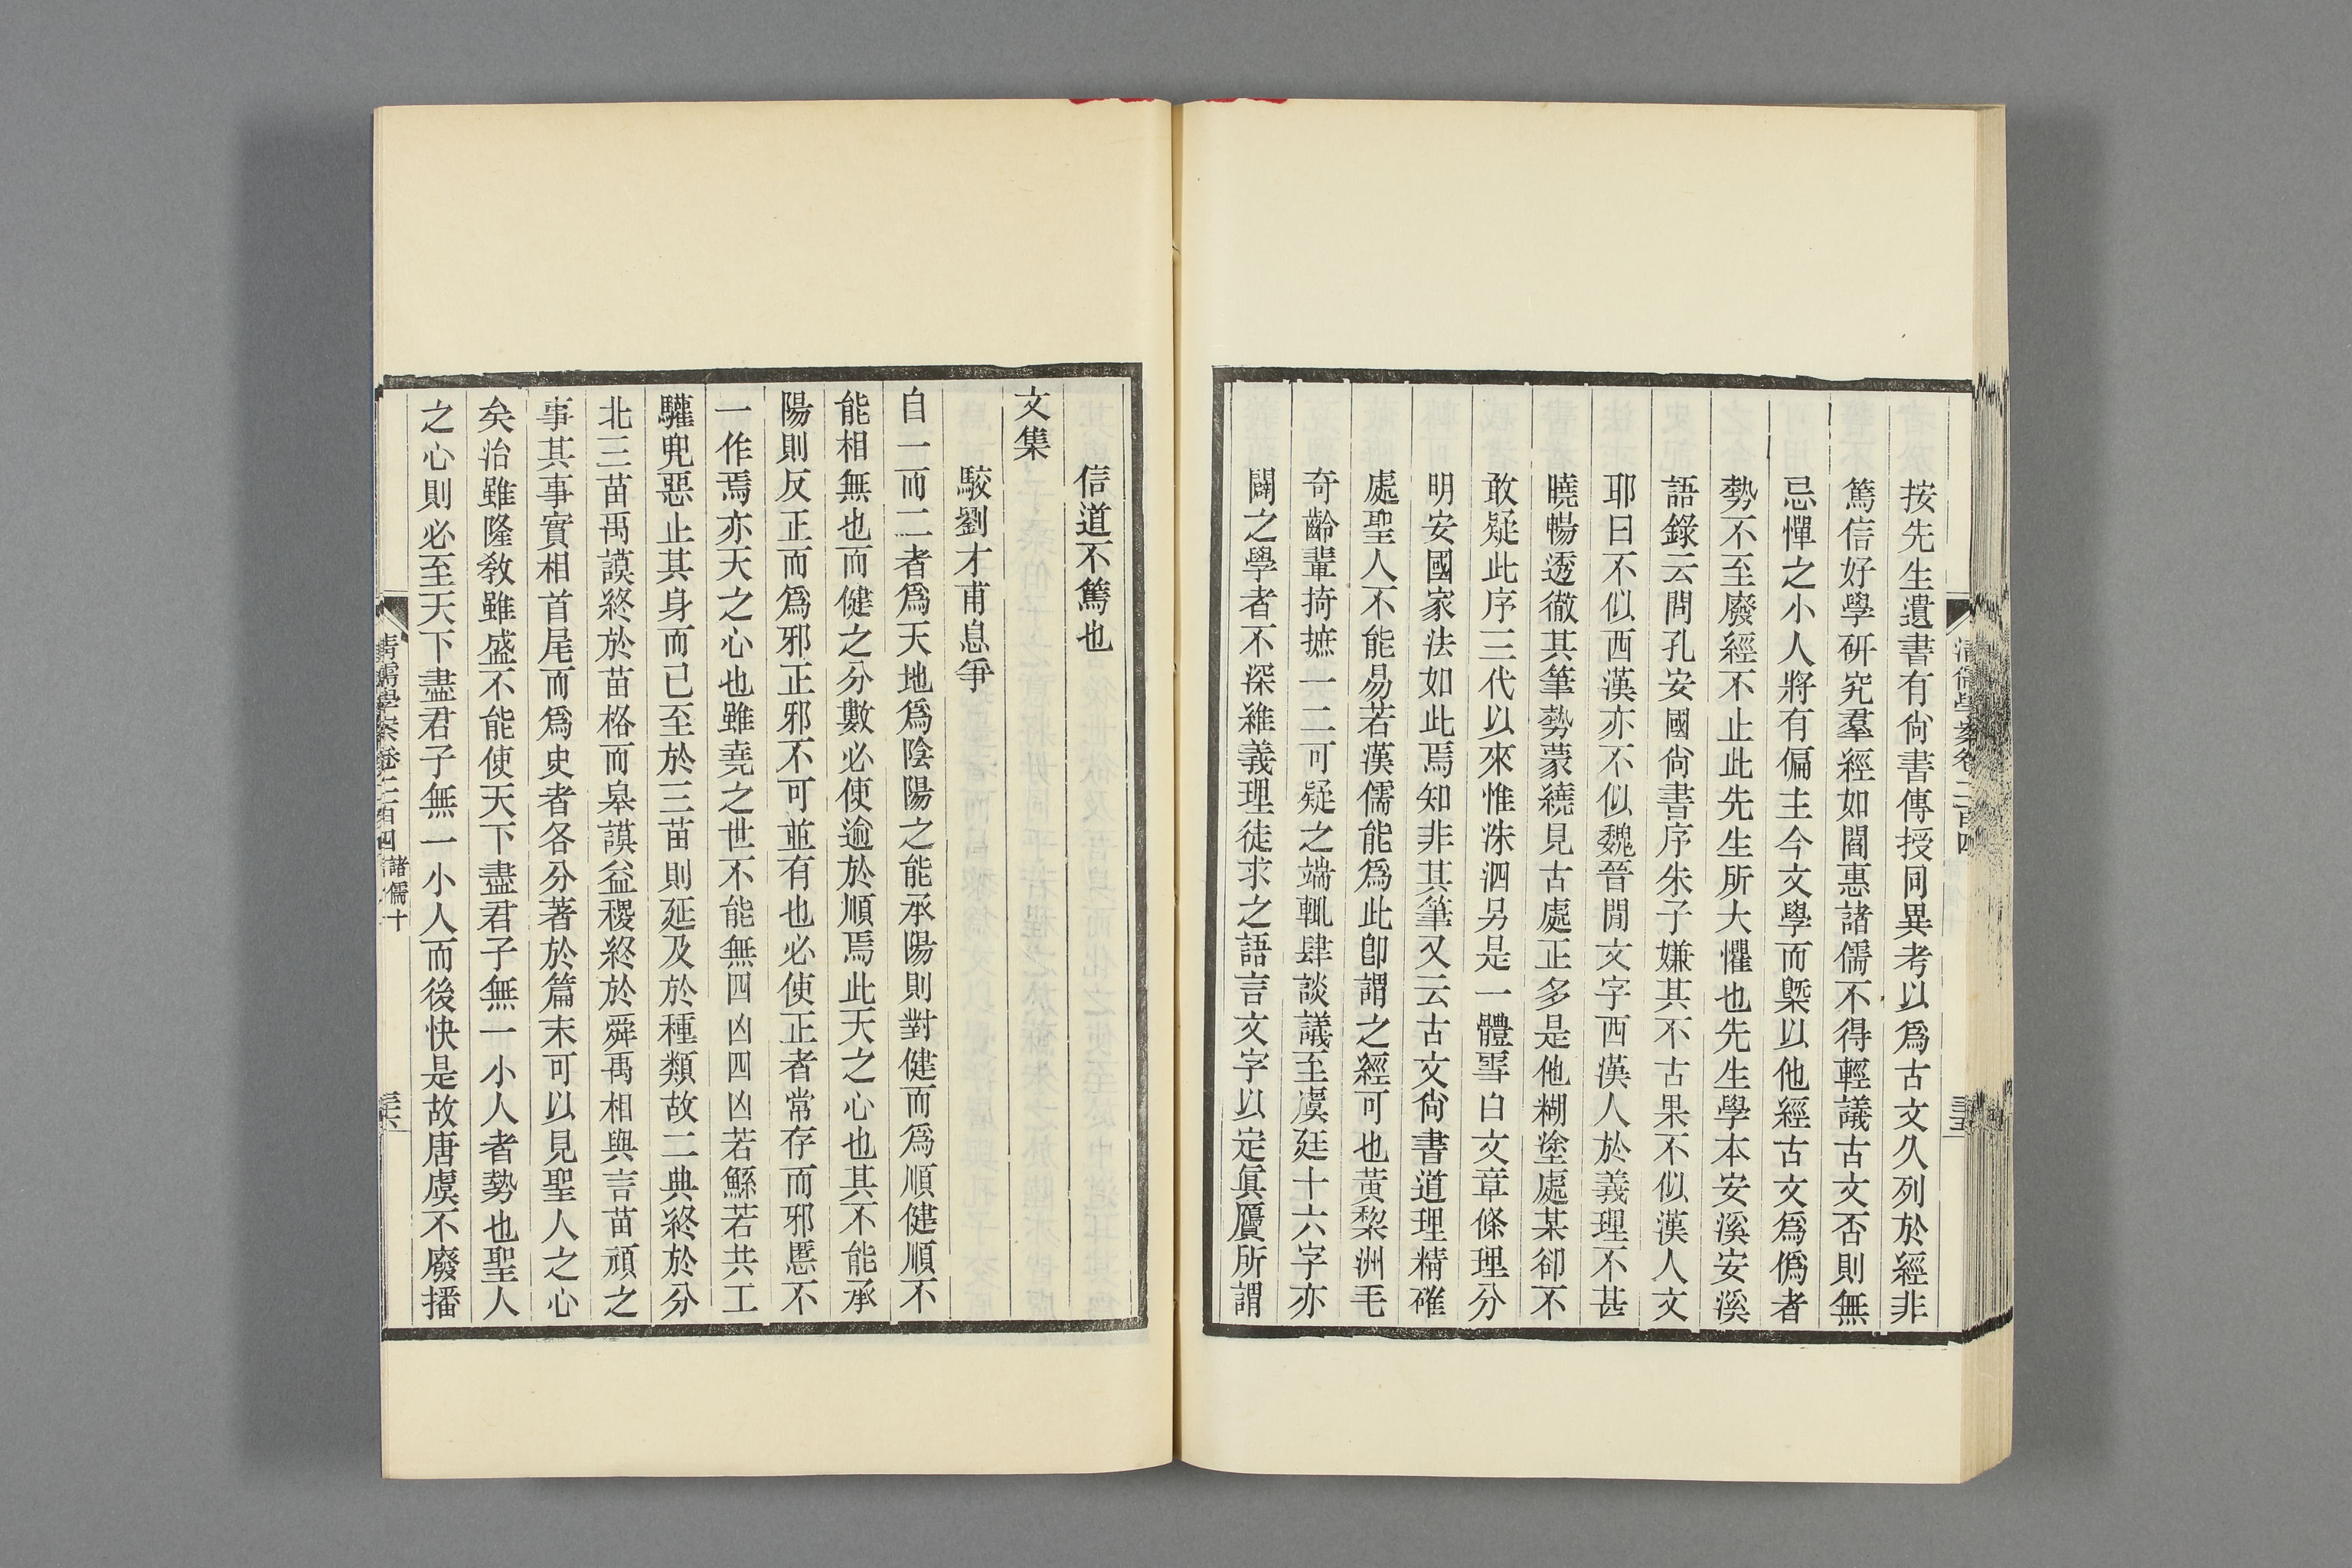 按先生遺書有尙書傳授同異考以爲古文久列於經非
篤信好學研究羣經如閻惠諸儒不得輕議古文否則無
忌憚之小人將有偏主今文學而槩以他經古文爲僞者
勢不至廢經不止此先生所大懼也先生學本安溪安溪
語錄云問孔安國尙書序朱子嫌其不古果不似漢人文
耶曰不似西漢亦不似魏晉閒文字西漢人於義理不甚
曉暢透徹其筆勢蒙繞見古處正多是他糊塗處某卻不
敢疑此序三代以來惟洙泗另是一體雪白文章條理分
明安國家法如此焉知非其筆又云古文尙書道理精確
處聖人不能易若漢儒能爲此卽謂之經可也黃棃洲毛
奇齡輩掎摭一二可疑之端輒肆談議至虞廷十六字亦
闢之學者不深維義理徒求之語言文字以定眞贗所謂
清儒學案卷二百四
三十五
信道不篤也
文集
駮劉才甫息爭
自一而二者爲天地爲陰陽之能承陽則對健而爲順健順不
能相無也而健之分數必使逾於順焉此天之心也其不能承
陽則反正而爲邪正邪不可並有也必使正者常存而邪慝不
一作焉亦天之心也雖堯之世不能無四凶四凶若鯀若共工
驩兜惡止其身而已至於三苗則延及於種類故二典終於分
北三苗禹謨終於苗格而皋謨益稷終於舜禹相與言苗頑之
事其事實相首尾而爲史者各分著於篇末可以見聖人之心
矣治雖隆敎雖盛不能使天下盡君子無一小人者勢也聖人
之心則必至天下盡君子無一小人而後快是故唐虞不廢播
清儒學案卷二百四
諸儒十
三十六